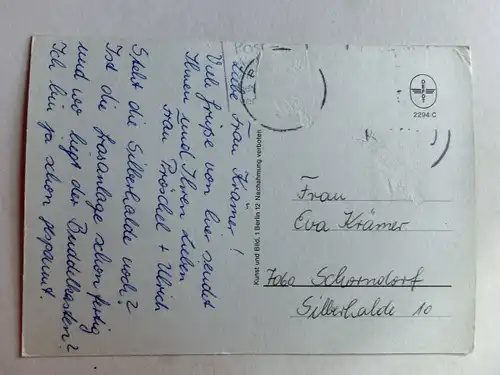 Liebe Frau Krämer!
Viele Grüße von hier sendet
Ihnen und Ihren Lieben
Frau Bröckel + Ulrich
Steht die Silberhalde noch?
Ist die Grasanlage schon fertig
und wo liegt der Buddelkasten?
Ich bin ja schon gespannt.
Kunst und Bild, 1 Berlin 12 Nachahmung verboten
2294:C
Frau
Eva Krämer
7060 Schorndorf
Silberhalde 10